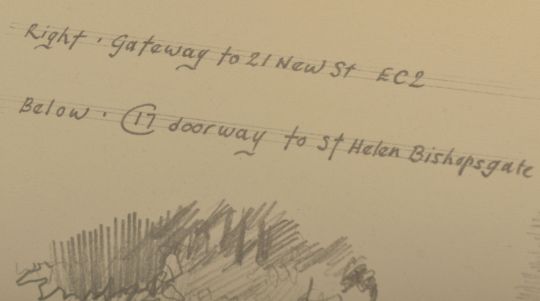 Right . Gateway to 21 New St EC2
Below . 17 doorway to St Helen Bishopsgate